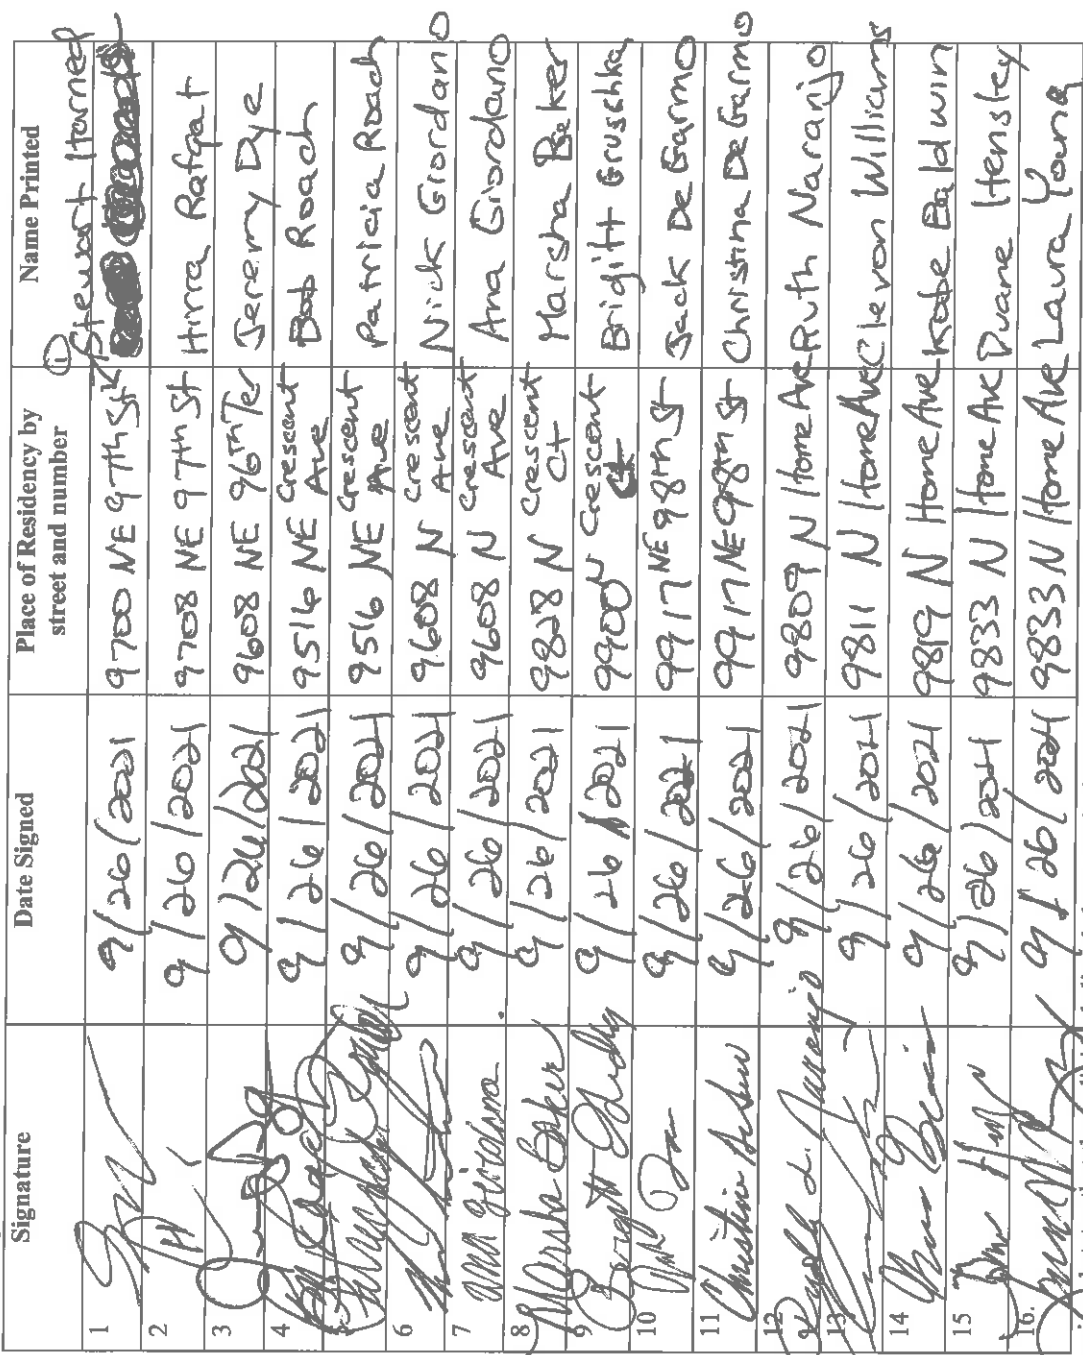 Signature Date Signed Place of Residency by street and number Name Printed
1 9/26/2021 9700 NE 97th St ① Stewart Harned
2 9/26/2021 9708 NE 97th St Hirra Rafqat
3 9/26/2021 9608 NE 96th Ter Jeremy Dye
4 9/26/2021 9516 NE Crescent Ave Bob Roach
5 9/26/2021 9516 NE Crescent Ave Patricia Roach
6 9/26/2021 9608 N Crescent Ave Nick Giordano
7 Ana Giordano 9/26/2021 9608 N Crescent Ave Ana Giordano
8 Marsha Baker 9/26/2021 9828 N Crescent Ct Marsha Baker
9 9/26/2021 9900 N Crescent Ct Brigitt Gruschka
10 9/26/2021 9917 NE 98th St Jack De Garmo
11 9/26/2021 9917 NE 98th St Christina De Garmo
12 9/26/2021 9809 N Home Ave Ruth Naranjo
13 9/26/2021 9811 N Home Ave Clevon Williams
14 9/26/2021 9819 N Home Ave Kobe Baldwin
15 9/26/2021 9833 N Home Ave Duane Hensley
16. 9/26/2021 9833 N Home Ave Laura Young